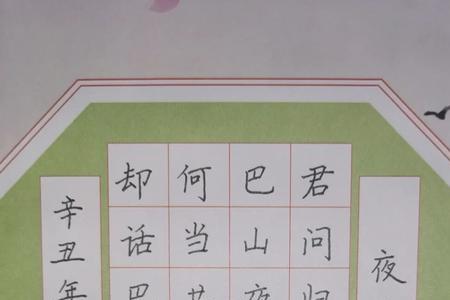 夜
君问归
巴山夜
何当共
却话巴
辛丑年